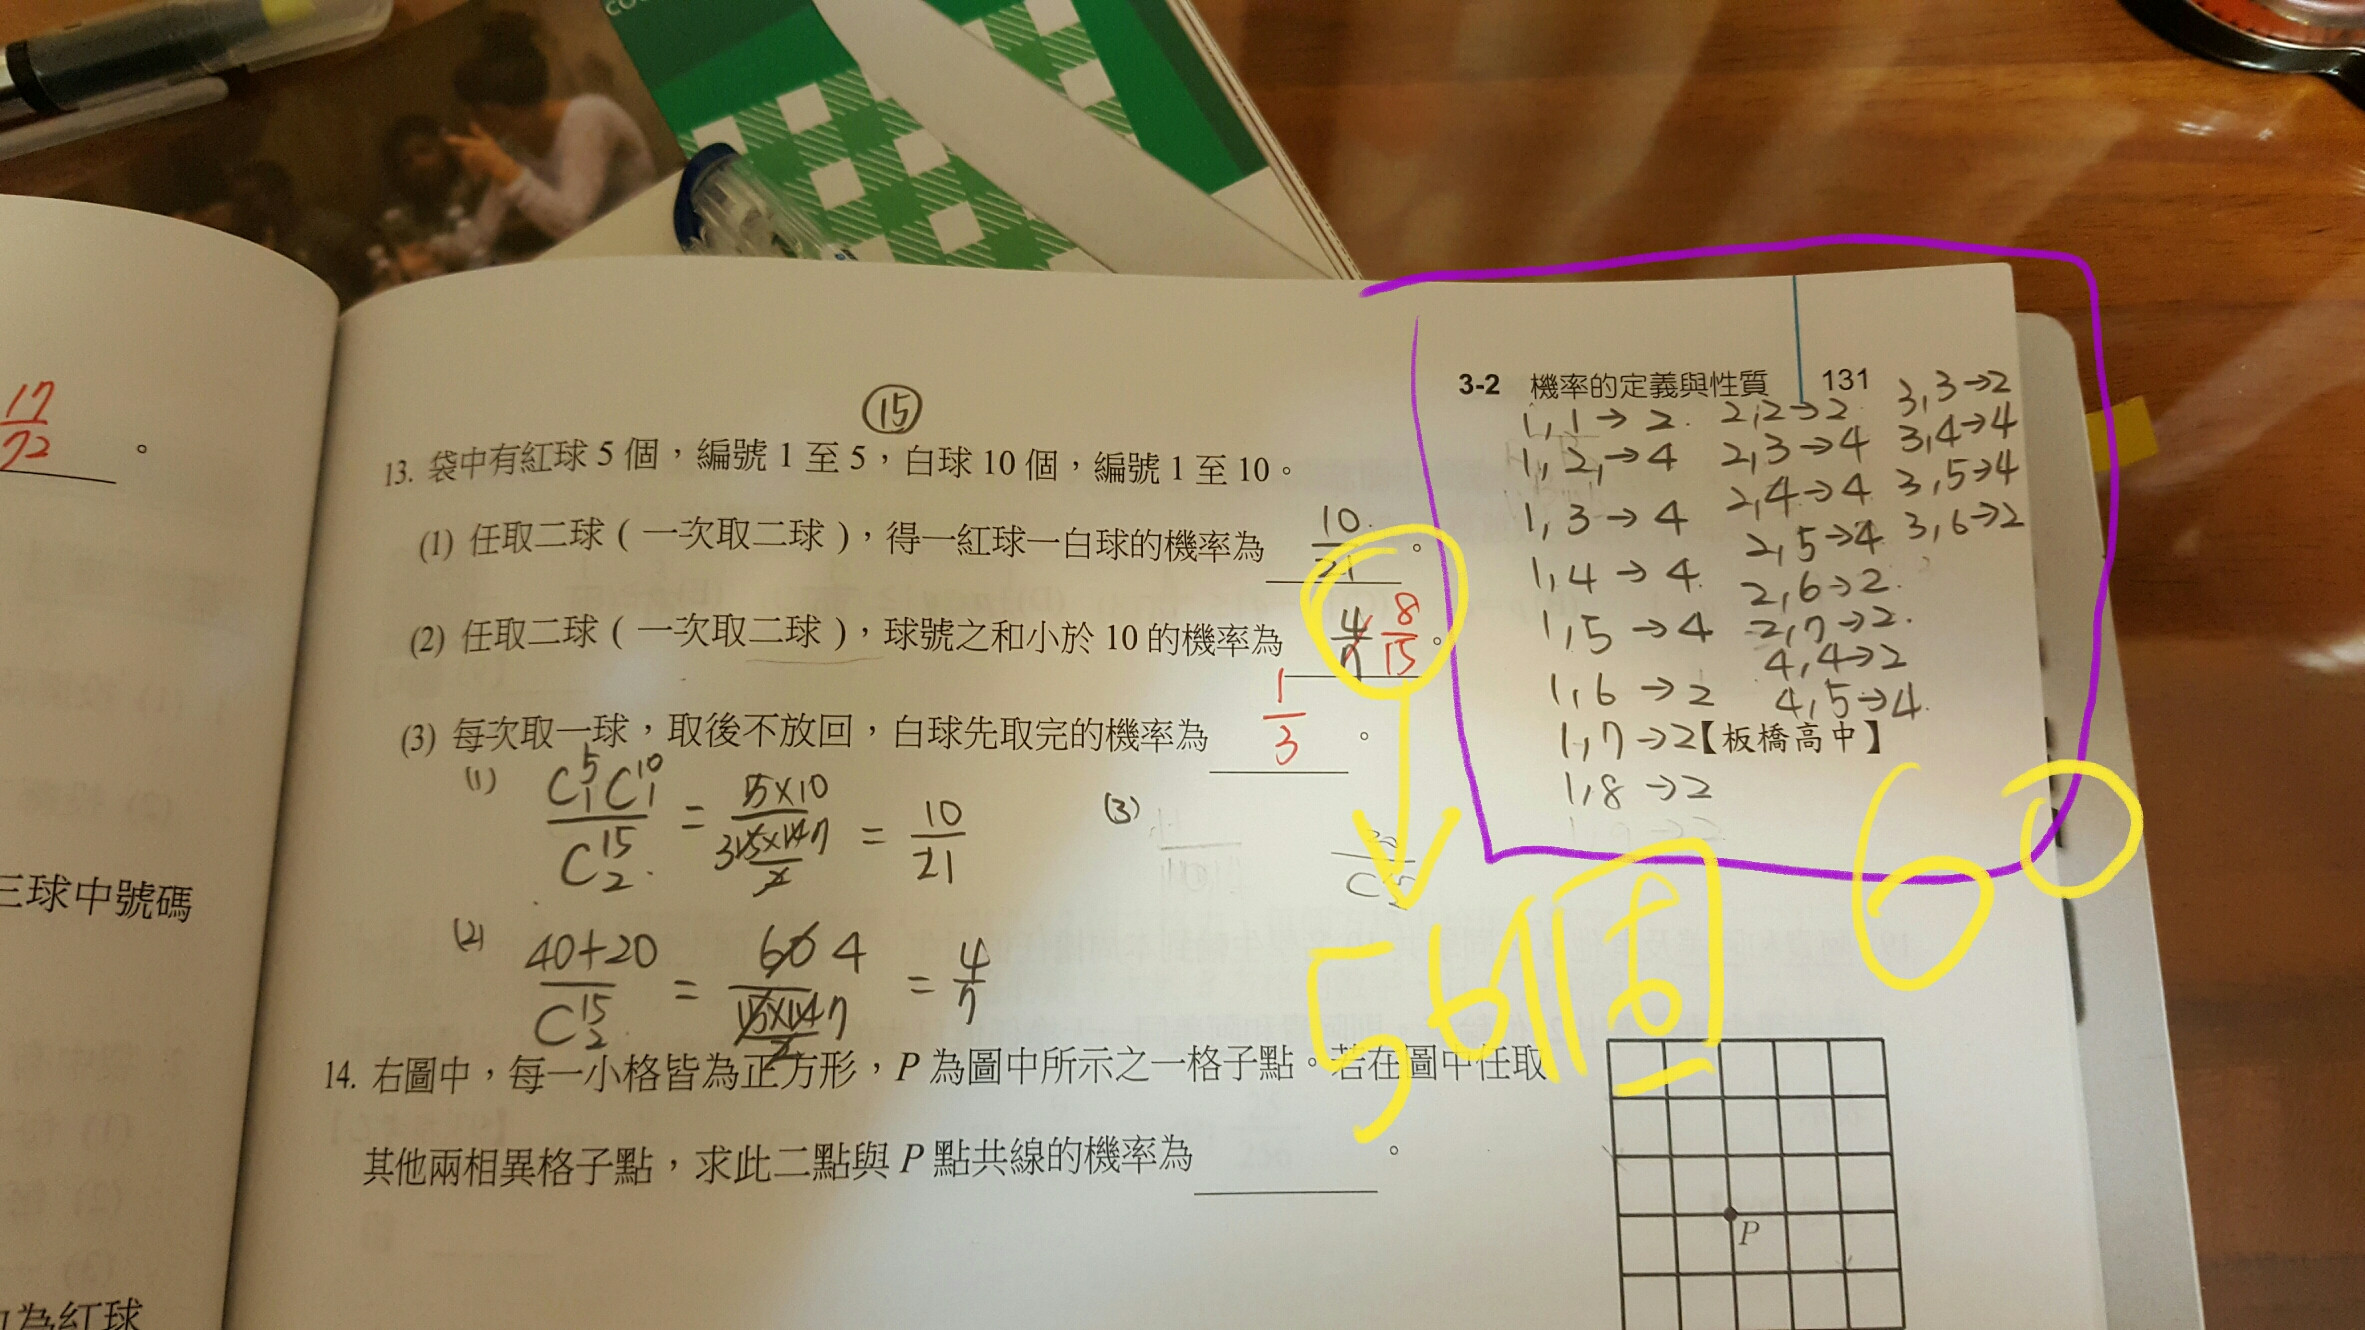 17
72
。
三球中號碼
為紅球
3-2 機率的定義與性質 131
1,1→2 2,2→2 3,3→2
1,2,→4 2,3→4 3,4→4
1,3→4 2,4→4 3,5→4
1,4→4 2,5→4 3,6→2
1,5→4 2,6→2
1,6→2 2,7→2
1,7→2 4,4→2
1,8→2 4,5→4
【板橋高中】
15
13. 袋中有紅球 5 個，編號 1 至 5，白球 10 個，編號 1 至 10。
(1) 任取二球（一次取二球），得一紅球一白球的機率為 10/21。
(2) 任取二球（一次取二球），球號之和小於 10 的機率為 4/7 8/15。
(3) 每次取一球，取後不放回，白球先取完的機率為 1/3。
(1) C⁵₁C¹⁰₁/C¹⁵₂ = 5×10/(15×14/2) = 10/21
(3)
(2) (40+20)/C¹⁵₂ = 60/(15×14/2) = 4/7
56個
60
14. 右圖中，每一小格皆為正方形，P 為圖中所示之一格子點。若在圖中任取
其他兩相異格子點，求此二點與 P 點共線的機率為 。
P